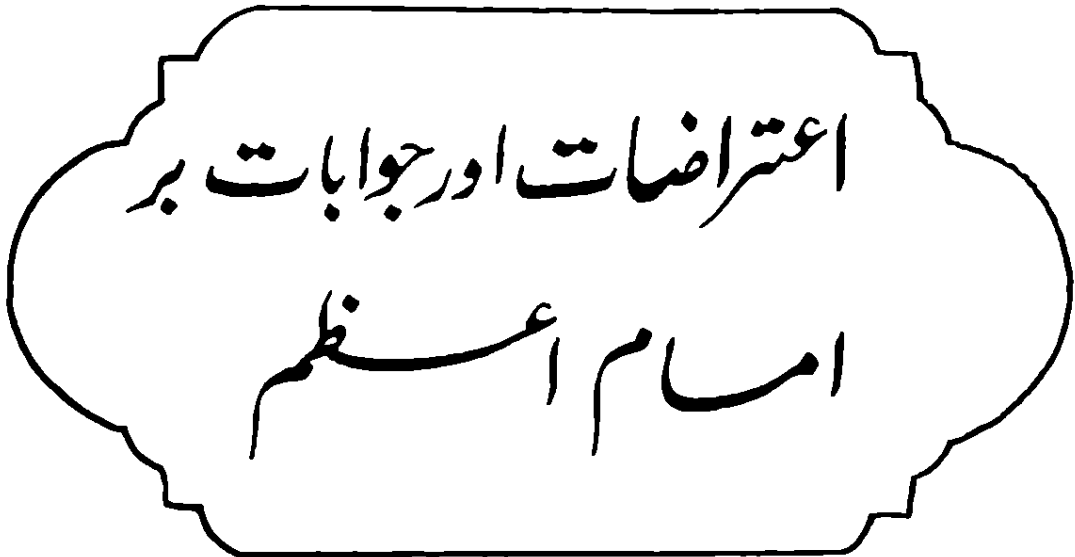 اعتراضات اور جوابات بر
امام اعظم